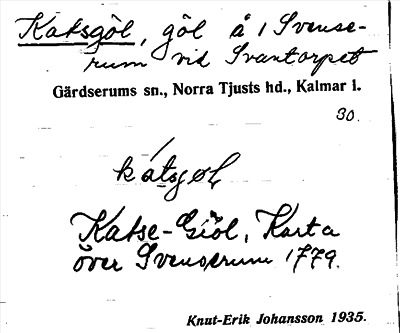 Katsgöl, göl å 1 Svense-
rum vid Svantorpet
Gärdserums sn., Norra Tjusts hd., Kalmar l.
30.
kátsgøl
Katse-Giöl, Karta
över Svenserum 1779.
Knut-Erik Johansson 1935.